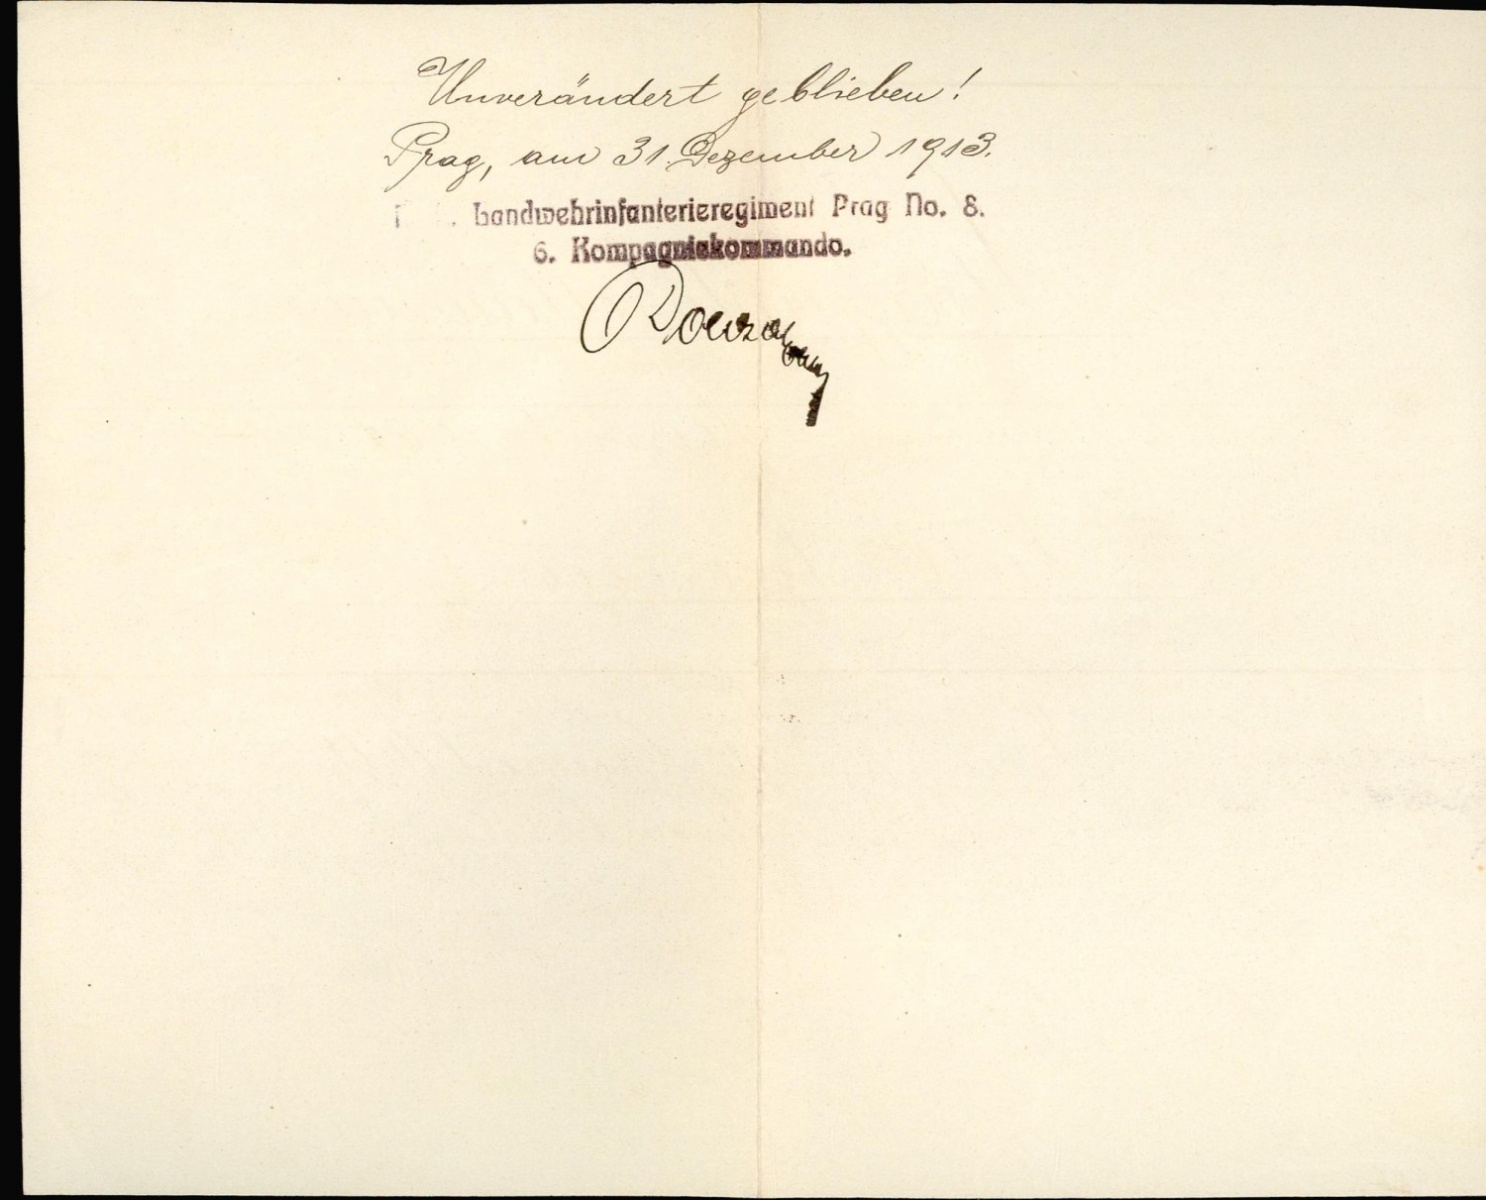 Unverändert geblieben!
Prag, am 31. Dezember 1913.
Landwehrinfanterieregiment Prag No. 8.
6. Kompagniekommando.